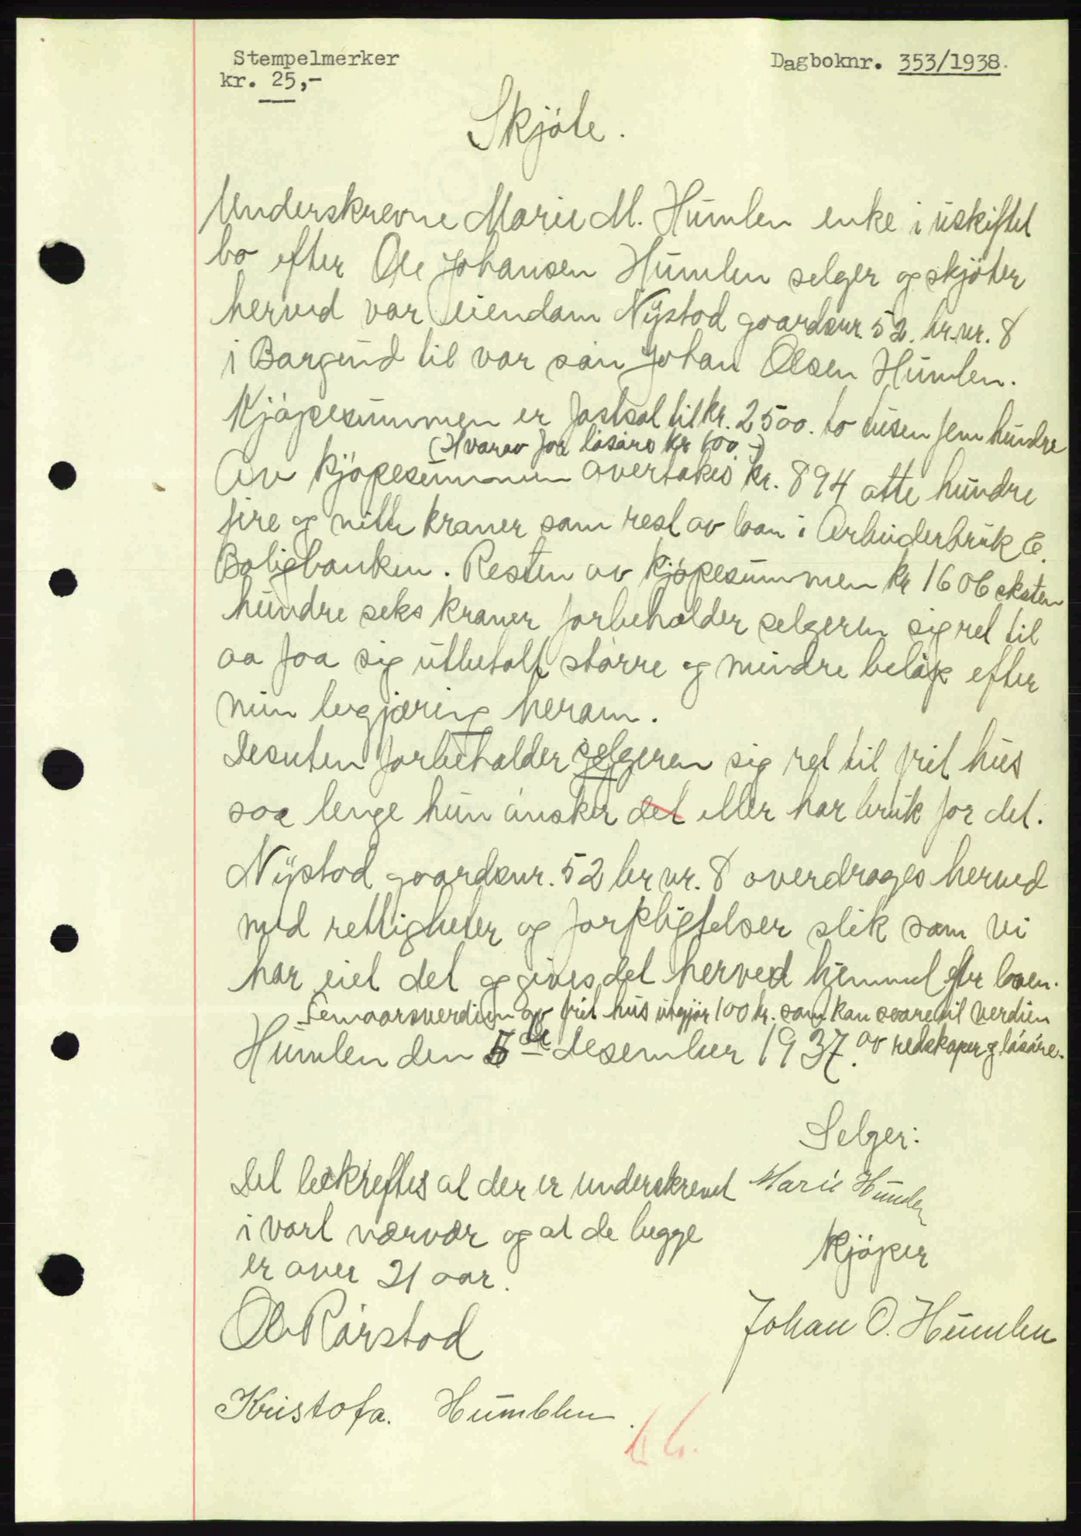 Stempelmerker
kr. 25,-
Dagboknr. 353/1938.
Skjøte.
Underskrevne Marie M. Humlen enke i uskiftet
bo efter Ole Johansen Humlen selger og skjøter
herved vor eiendom Nystod gaardsnr. 52. br.nr. 8
i Borgund til vor søn Johan Olsen Humlen.
Kjøpesummen er fastsat til kr. 2500. to tusen fem hundre
(Hvorav for løsøre kr 600.-)
Av kjøpesummen overtakes kr. 894 otte hundre
fire og nitti kroner som rest av laan i Arbeiderbruk &
Boligbanken. Resten av kjøpesummen kr 1606 seksten
hundre seks kroner forbeholder selgeren sig ret til
aa faa sig utbetalt større og mindre beløp efter
min begjæring herom.
Desuten forbeholder selgeren sig ret til frit hus
saa lenge hun ønsker det eller har bruk for det.
Nystod gaardsnr. 52 br nr. 8 overdrages herved
med rettigheter og forpligtelser slik som vi
har eiet det og gives det herved hjemmel efter loven.
Femaarsverdien av frit hus utgjør 100 kr. som kan svare til verdien
av redskaper g løsøre.
Humlen den 5 de desember 1937.
Selger:
Det bekreftes at der er underskrevet
Marie Humlen
i vort nærvær og at de begge
Kjøper
er over 21 aar.
Ole Rørstad
Johan O. Humlen
Kristofa. Humblen.